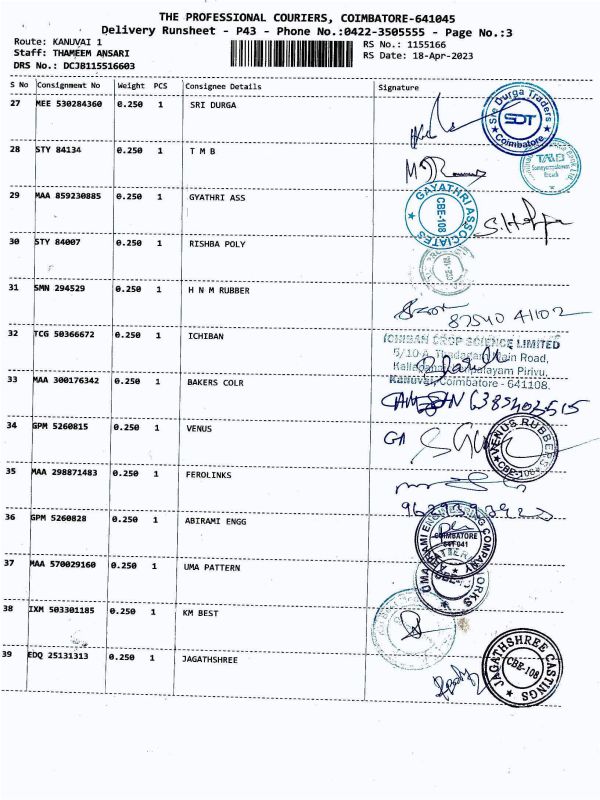 THE PROFESSIONAL COURIERS, COIMBATORE-641045
Delivery Runsheet - P43 - Phone No.:0422-3505555 - Page No.:3
Route: KANUVAI 1
RS No.: 1155166
Staff: THAMEEM ANSARI
RS Date: 18-Apr-2023
DRS No.: DCJB115516603
S No Consignment No Weight PCS Consignee Details Signature
27 MEE 530284360 0.250 1 SRI DURGA
Sree Durga Traders
SDT
Coimbatore
28 STY 84134 0.250 1 T M B
TMB
29 MAA 859230885 0.250 1 GYATHRI ASS
GAYATHRI ASSOCIATES
CBE-108
30 STY 84007 0.250 1 RISHBA POLY
31 SMN 294529 0.250 1 H N M RUBBER
87540 41102
32 TCG 50366672 0.250 1 ICHIBAN
ICHIBAN CROP SCIENCE LIMITED
5/10-A, Thadagam Main Road,
Pirivu,
Kanuvai, Coimbatore - 641108.
33 MAA 300176342 0.250 1 BAKERS COLR
6385403515
34 GPM 5260815 0.250 1 VENUS
VENUS RUBBERS
CBE-108
35 MAA 298871483 0.250 1 FEROLINKS
36 GPM 5260828 0.250 1 ABIRAMI ENGG
ABIRAMI ENGINEERING COMPANY
COIMBATORE
641 041
37 MAA 570029160 0.250 1 UMA PATTERN
UMA PATTERN WORKS
38 IXM 503301185 0.250 1 KM BEST
39 EDQ 25131313 0.250 1 JAGATHSHREE
JAGATHSHREE CASTINGS
CBE-108